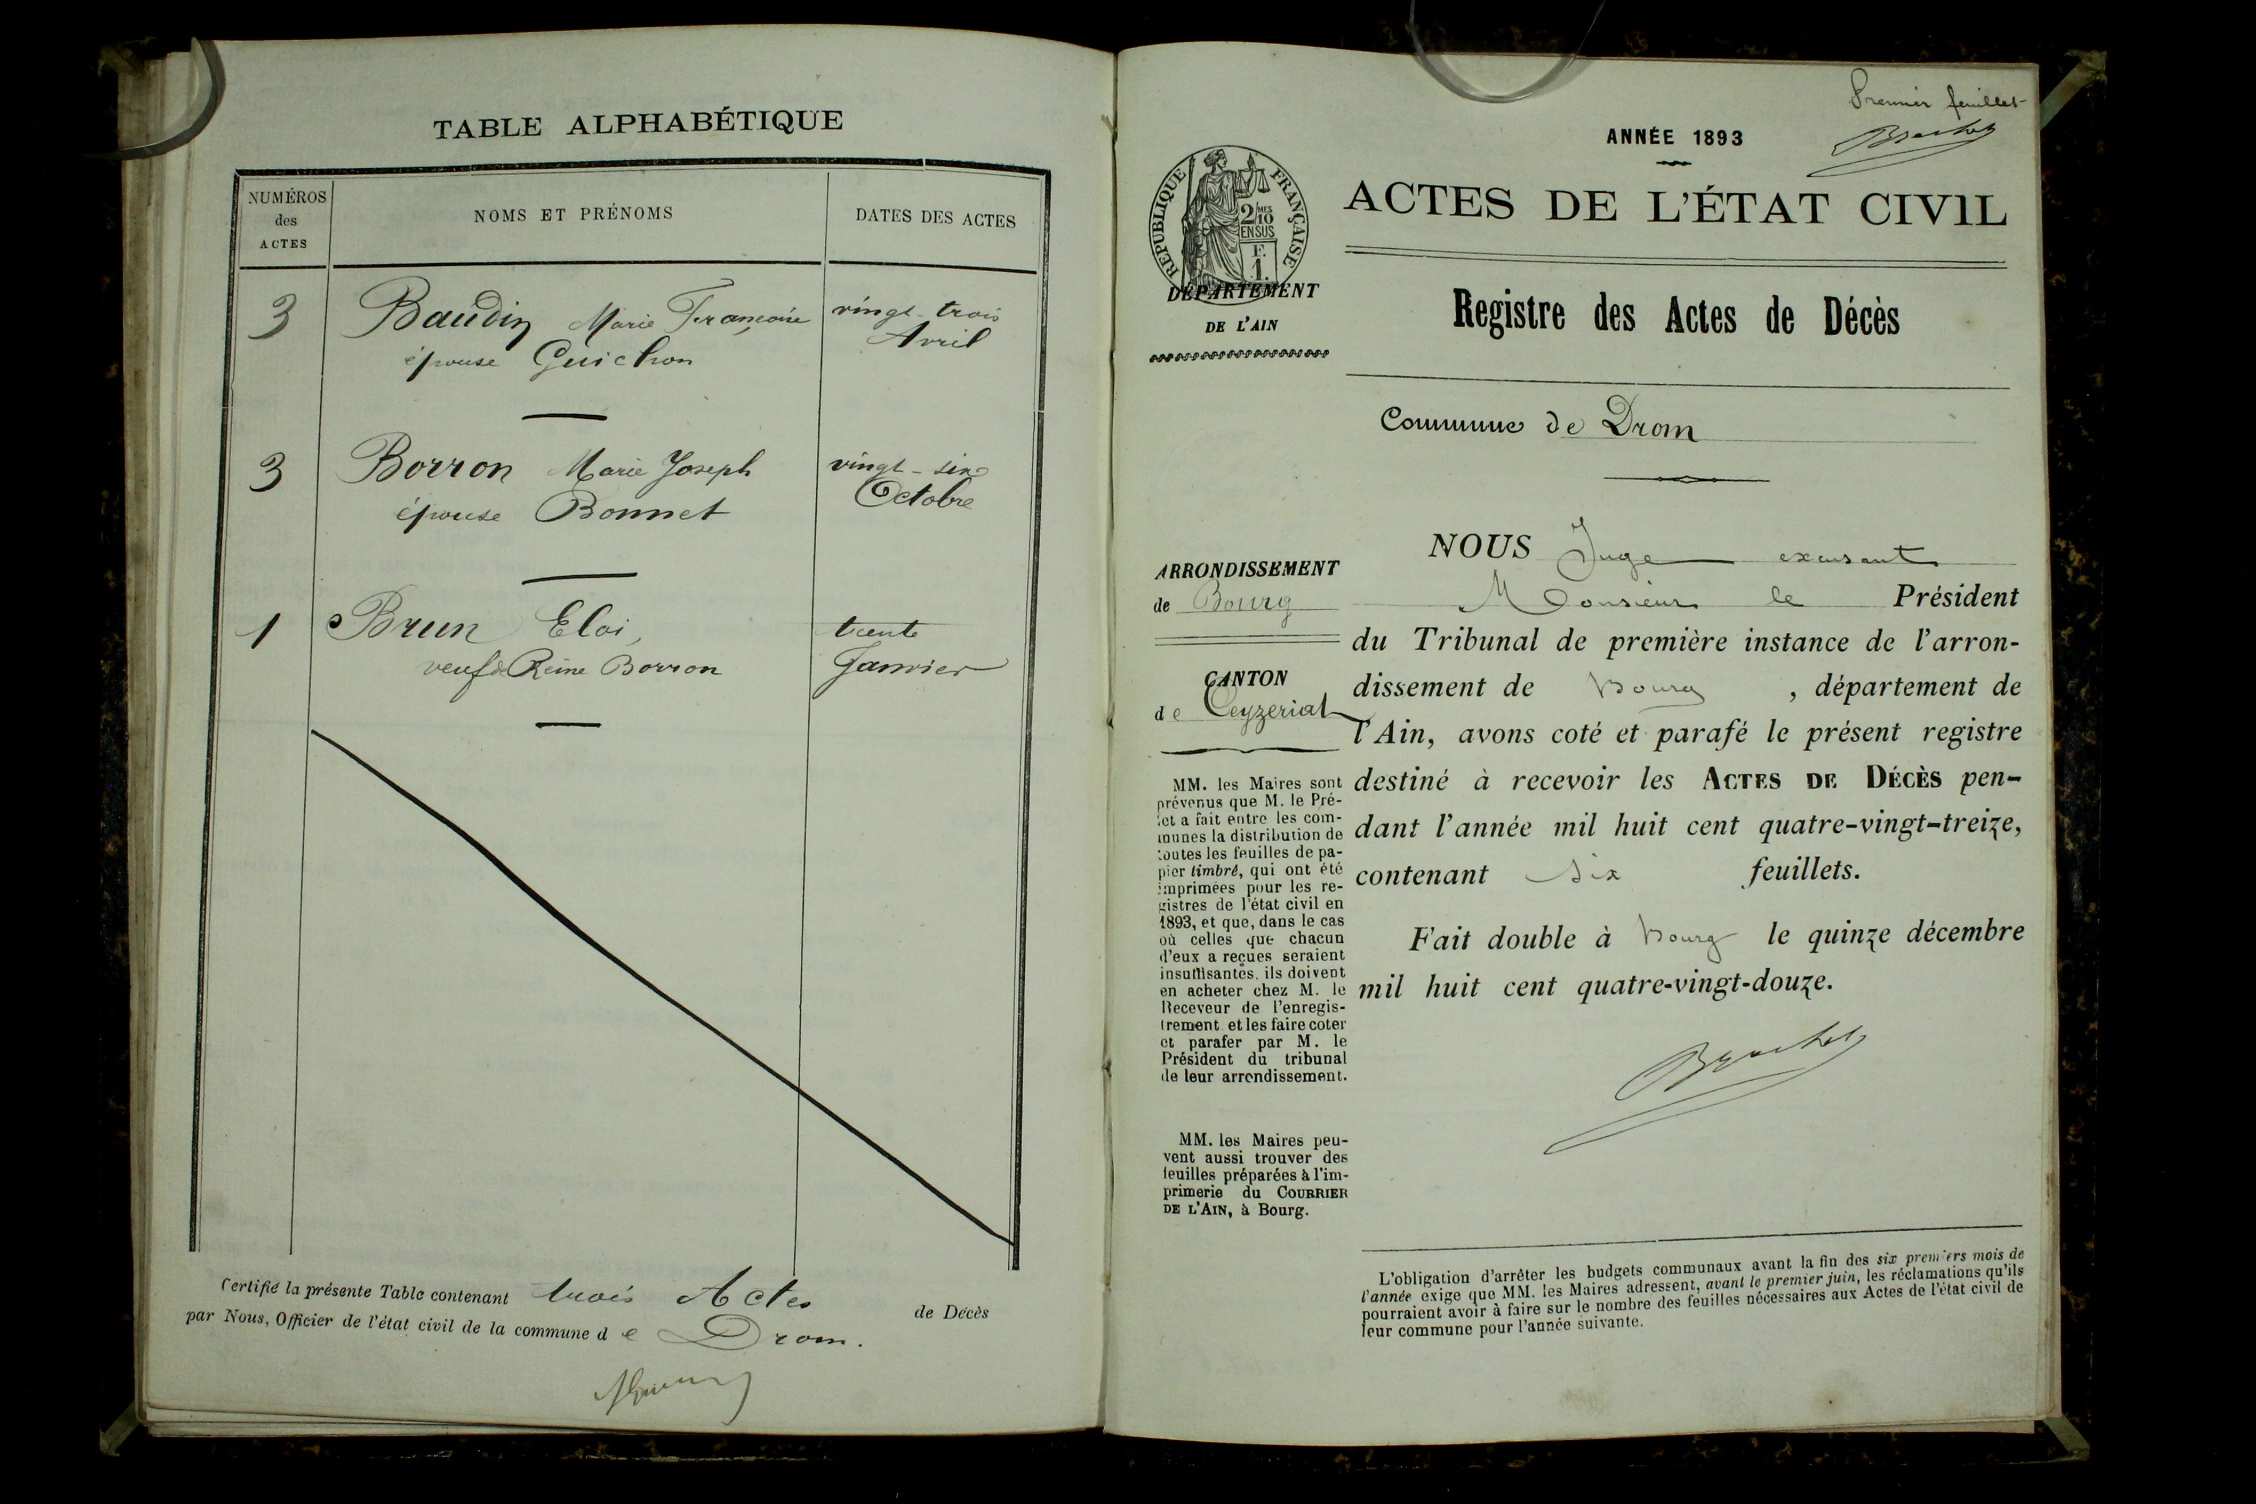 TABLE ALPHABÉTIQUE
NUMÉROS des ACTES
NOMS ET PRÉNOMS
DATES DES ACTES
3 Baudin Marie Françoise vingt-trois
épouse Guichon Avril
3 Borron Marie Joseph vingt-six
épouse Bonnet Octobre
1 Brun Eloi trente
veuf de Reine Borron Janvier
Certifié la présente Table contenant trois Actes de Décès
par Nous, Officier de l'état civil de la commune de Drom.
Premier feuillet
ANNÉE 1893
ACTES DE L'ÉTAT CIVIL
RÉPUBLIQUE FRANÇAISE
2/10 MES
EN SUS
F.
1.
DÉPARTEMENT
DE L'AIN
Registre des Actes de Décès
Commune de Drom
ARRONDISSEMENT
de Bourg
CANTON
de Ceyzeriat
MM. les Maires sont
prévenus que M. le Pré-
fet a fait entre les com-
munes la distribution de
toutes les feuilles de pa-
pier timbré, qui ont été
imprimées pour les re-
gistres de l'état civil en
1893, et que, dans le cas
où celles que chacun
d'eux a reçues seraient
insuffisantes, ils doivent
en acheter chez M. le
Receveur de l'enregis-
trement et les faire coter
et parafer par M. le
Président du tribunal
de leur arrondissement.
MM. les Maires peu-
vent aussi trouver des
feuilles préparées à l'im-
primerie du COURRIER
DE L'AIN, à Bourg.
NOUS Juge excusant
Monsieur le Président
du Tribunal de première instance de l'arron-
dissement de Bourg, département de
l'Ain, avons coté et parafé le présent registre
destiné à recevoir les ACTES DE DÉCÈS pen-
dant l'année mil huit cent quatre-vingt-treize,
contenant six feuillets.
Fait double à Bourg le quinze décembre
mil huit cent quatre-vingt-douze.
L'obligation d'arrêter les budgets communaux avant la fin des six premiers mois de
l'année exige que MM. les Maires adressent, avant le premier juin, les réclamations qu'ils
pourraient avoir à faire sur le nombre des feuilles nécessaires aux Actes de l'état civil de
leur commune pour l'année suivante.